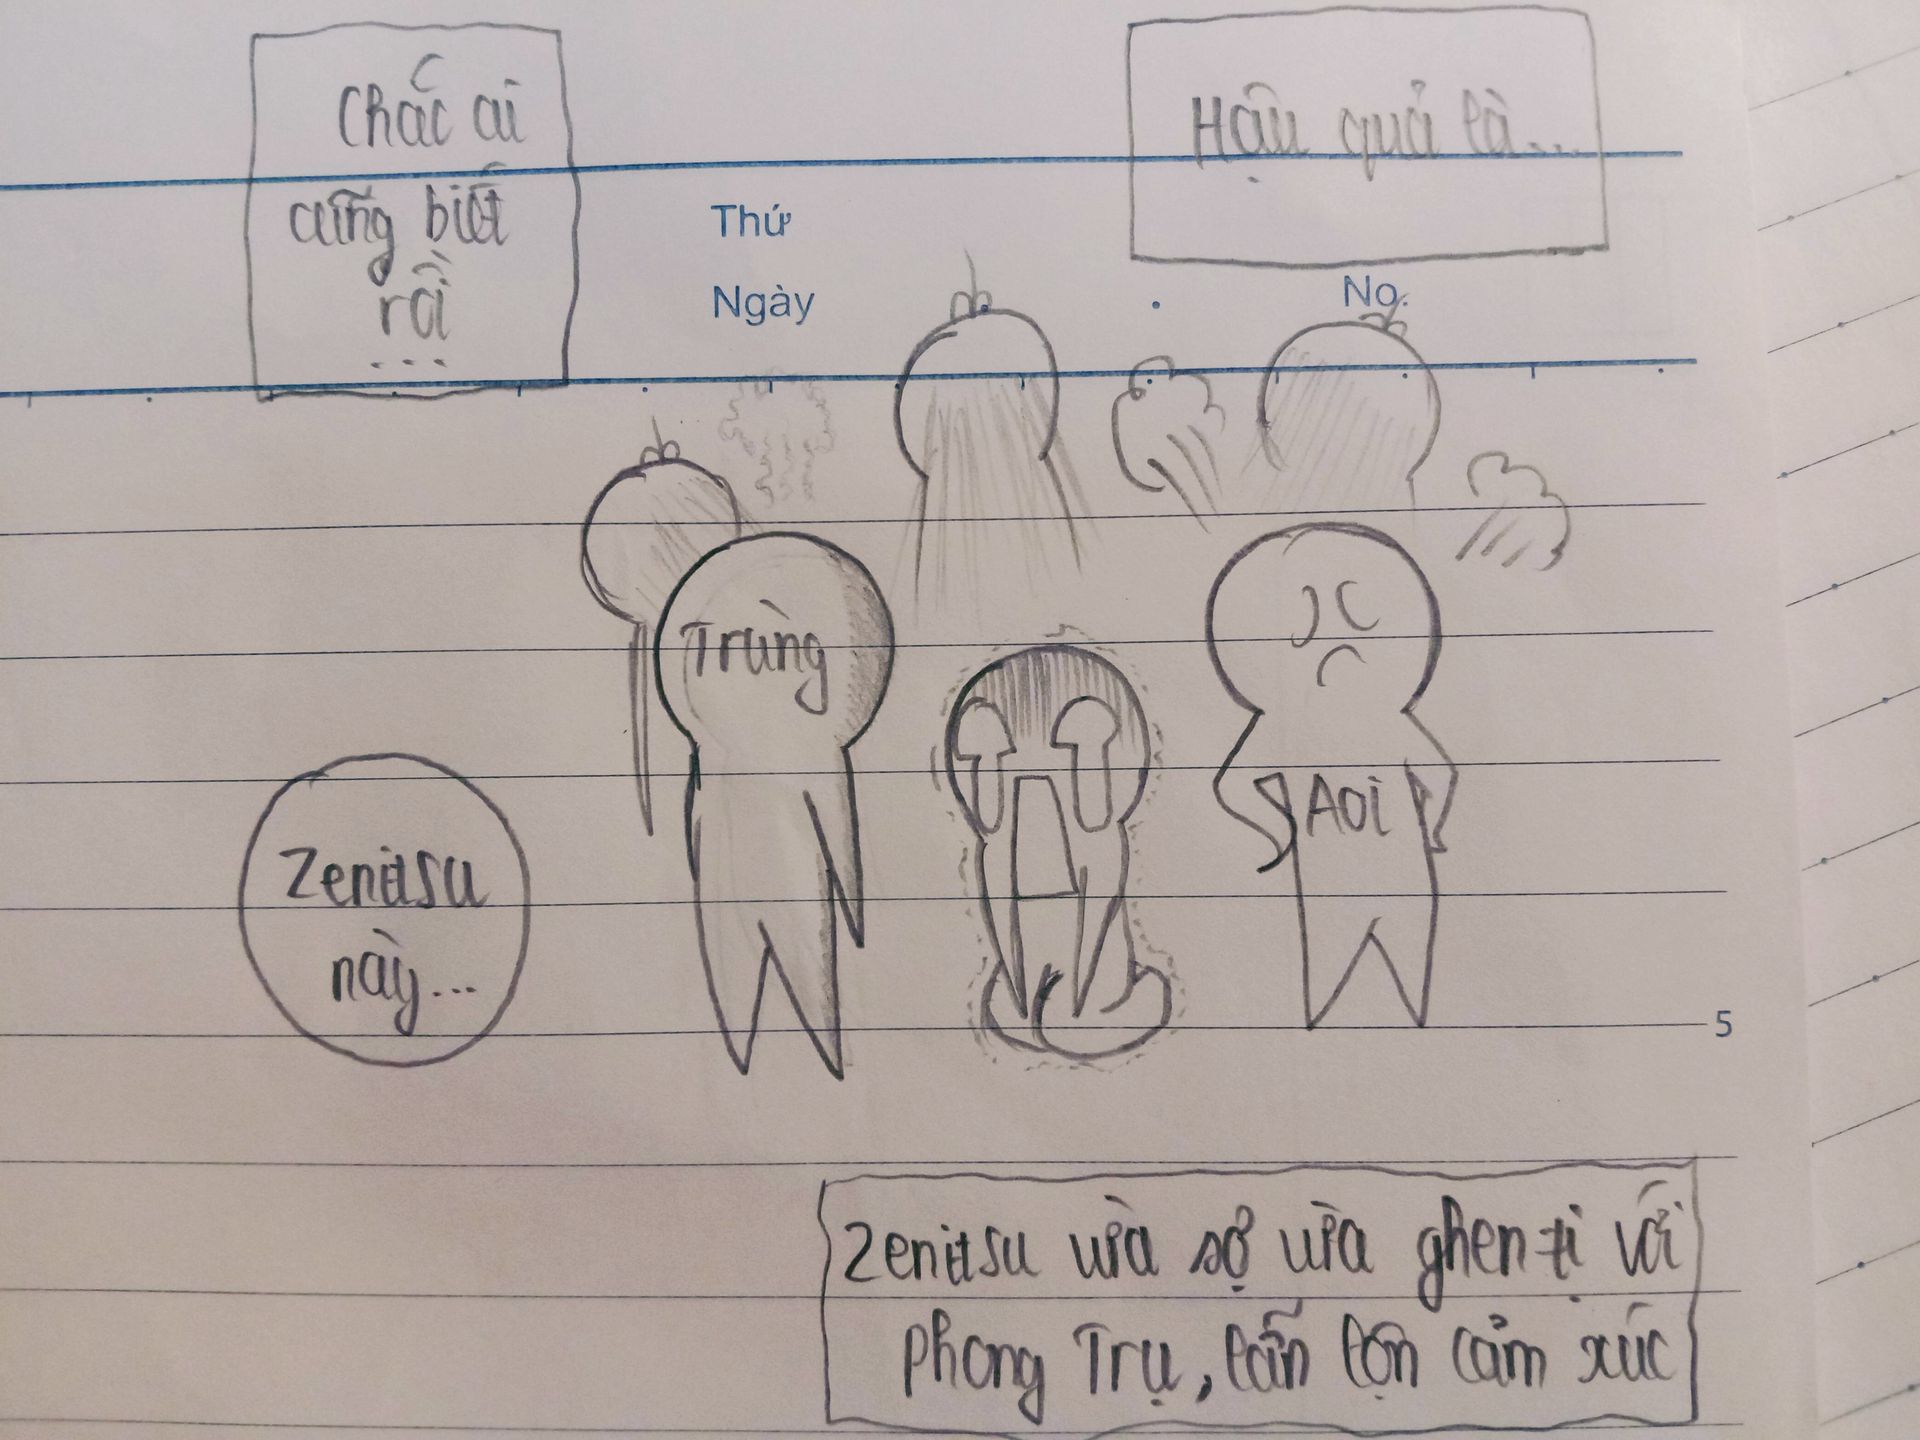 Chắc ai
cũng biết
rồi
...
Hậu quả là...
Thứ
Ngày
No.
Trùng
Aoi
Zenitsu
này...
5
Zenitsu vừa sợ vừa ghen tị với
Phong Trụ, lẫn lộn cảm xúc